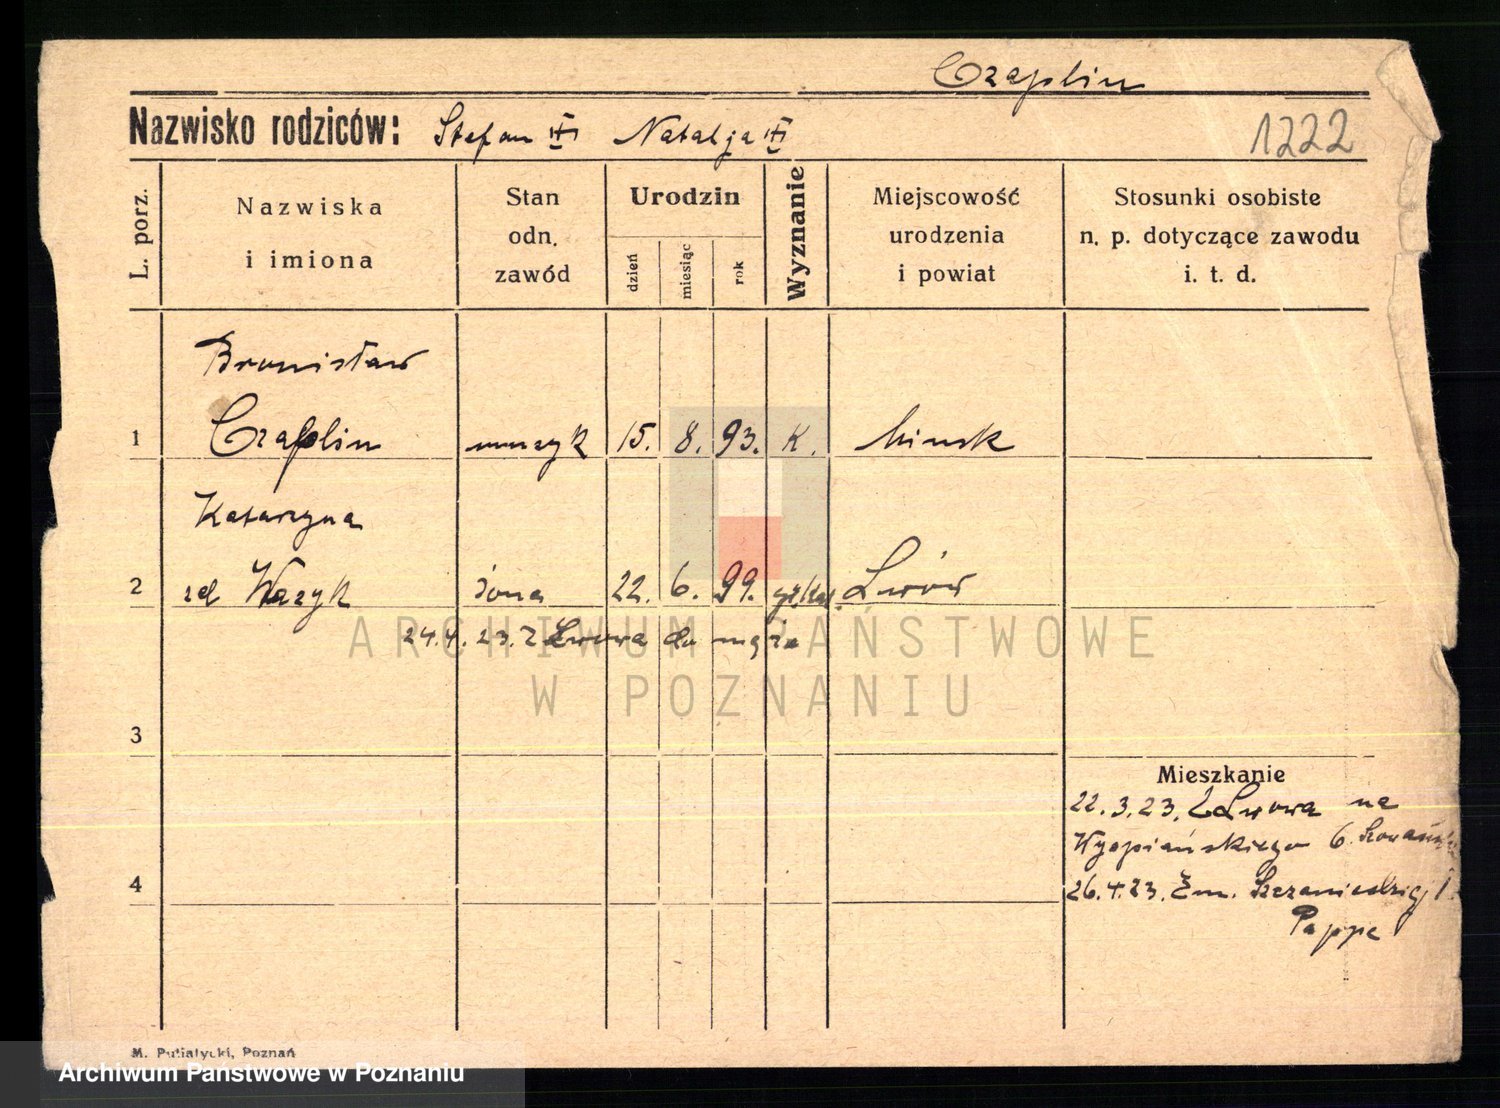 Czaplin
Nazwisko rodziców: Stefan Natalja
1222
L. porz.
Nazwiska
i imiona
Stan
odn.
zawód
Urodzin
dzień
miesiąc
rok
Wyznanie
Miejscowość
urodzenia
i powiat
Stosunki osobiste
n. p. dotyczące zawodu
i. t. d.
Bronisław
1 Czaplin muzyk 15. 8. 93. K. Minsk
Katarzyna
2 Wazyk żona 22. 6. 99. gr. kat. Lwów
24.4.23. z Lwowa do męża
ARCHIWUM PAŃSTWOWE
W POZNANIU
3
Mieszkanie
22.3.23. z Lwowa na
Wyspiańskiego 6.
4
26.4.23. Zm.
Pappe
M. Putiatycki, Poznań
Archiwum Państwowe w Poznaniu